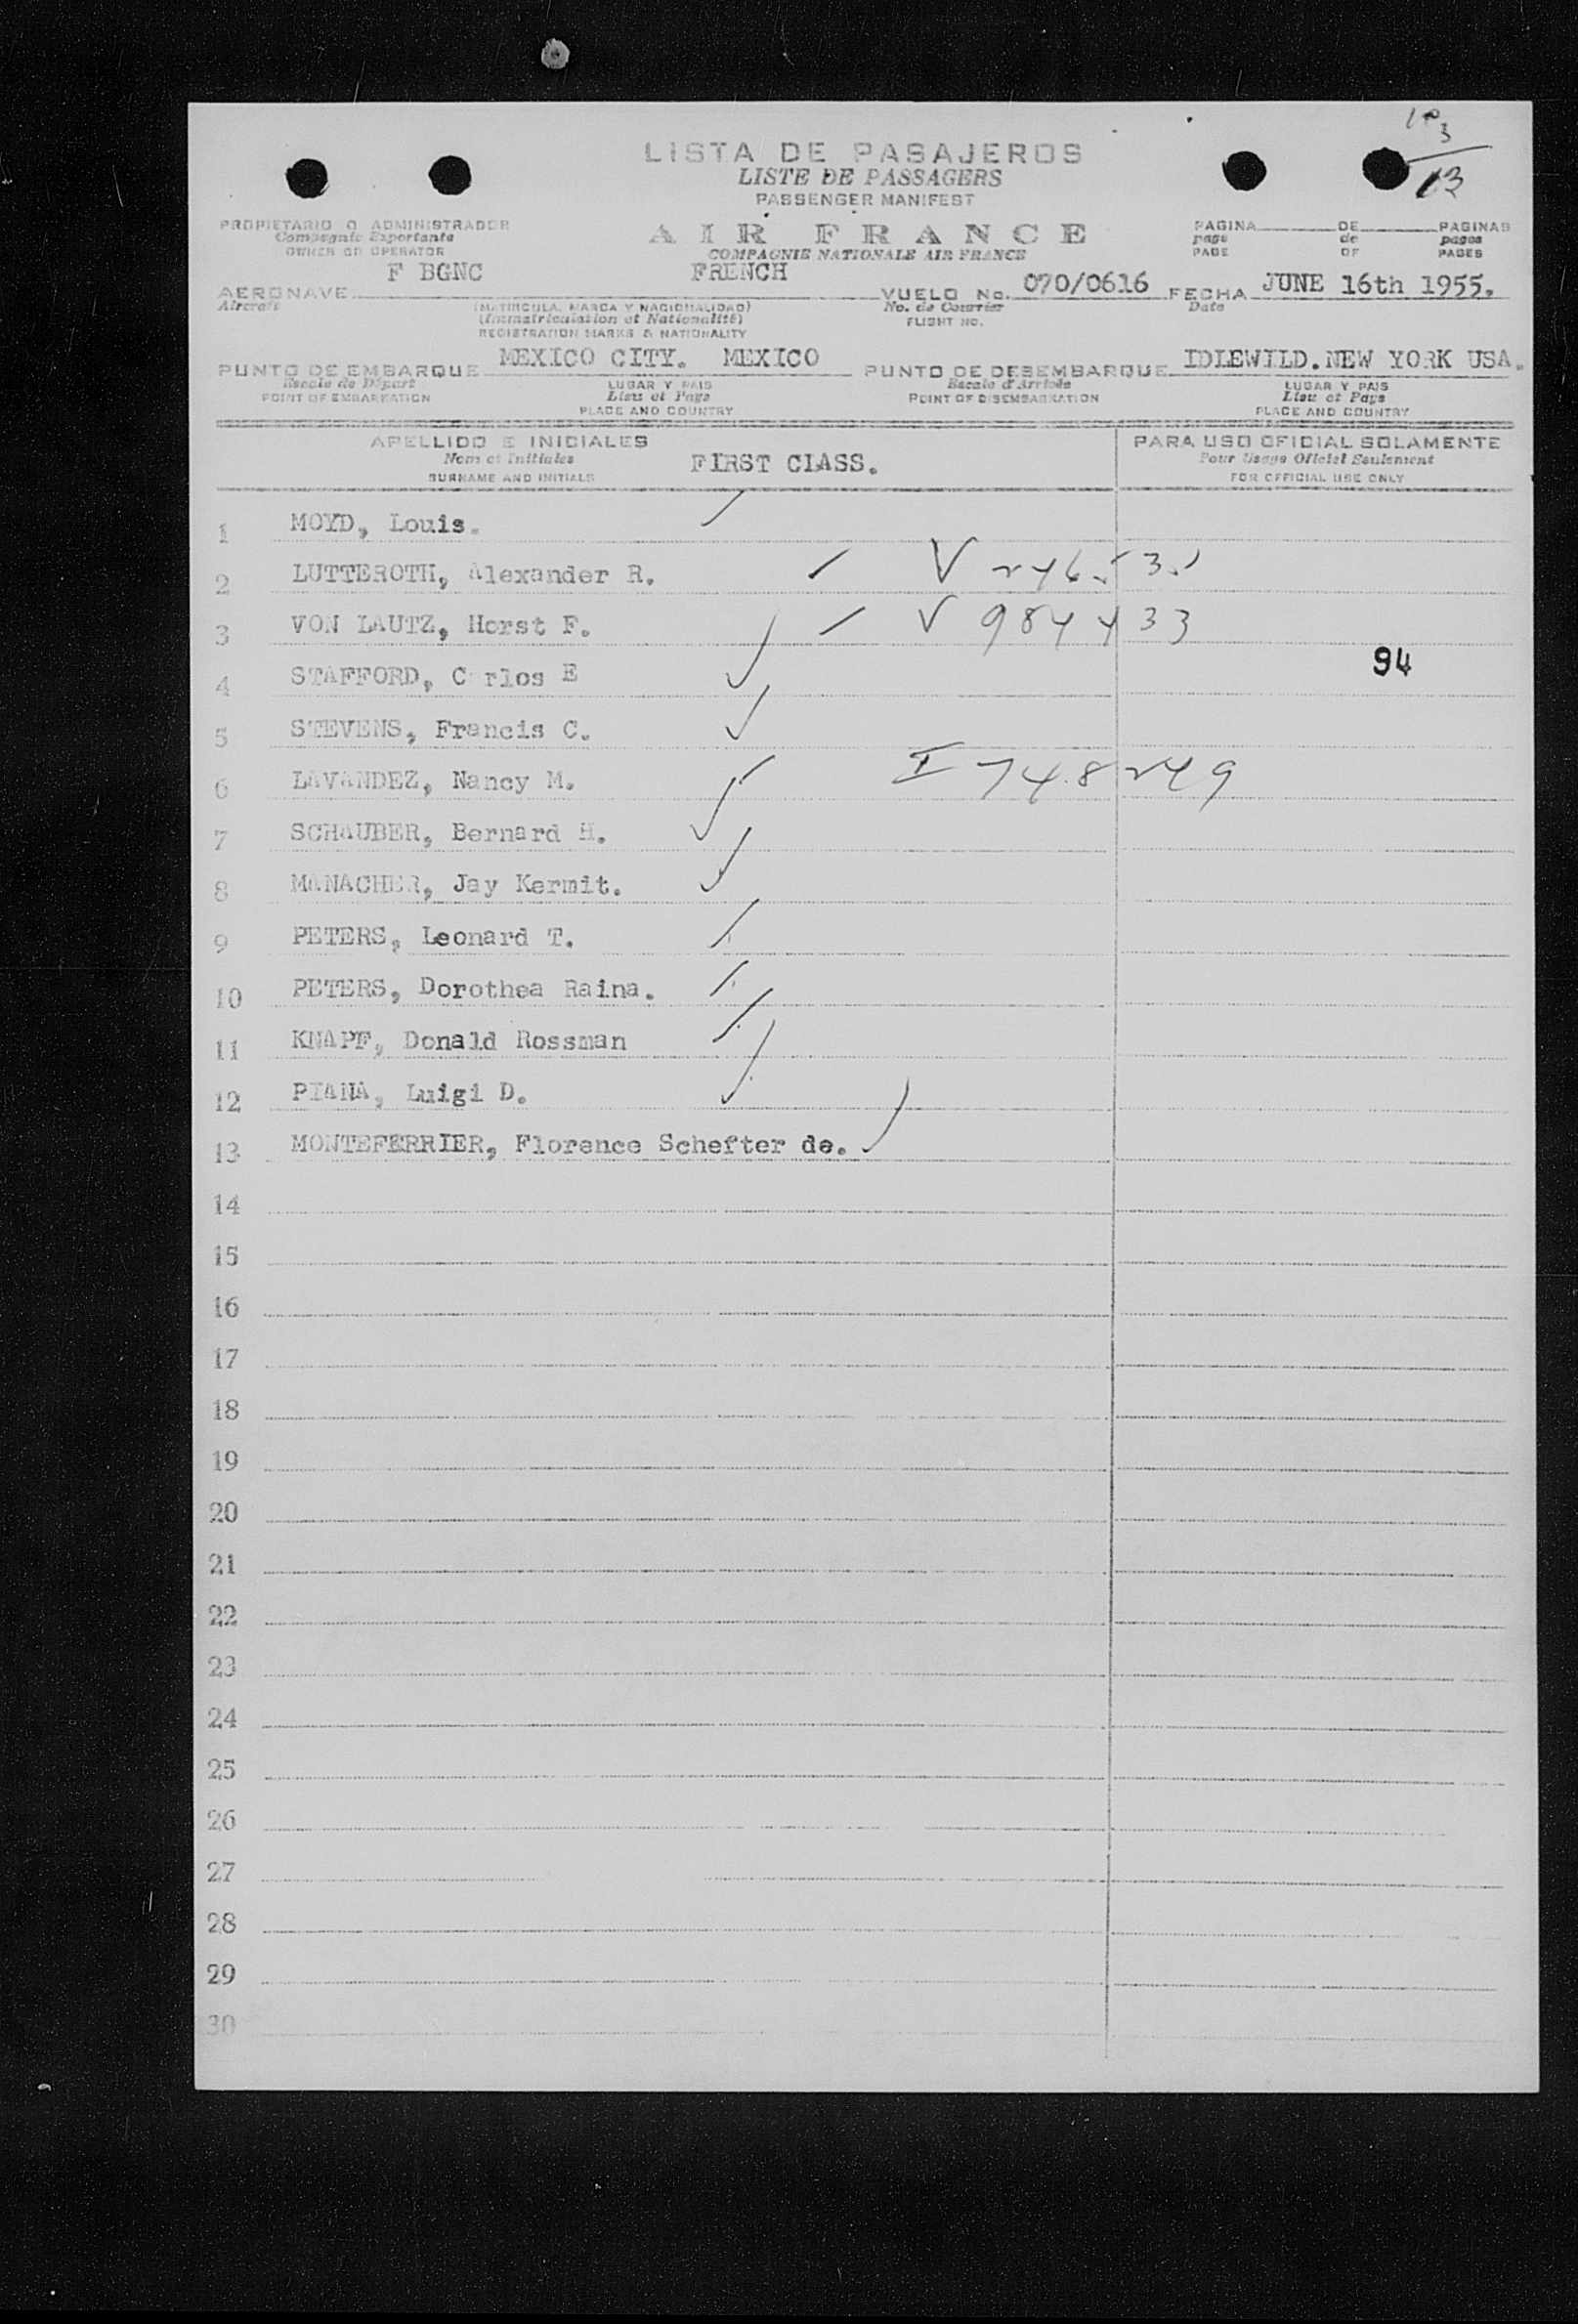 3
13
LISTA DE PASAJEROS
LISTE DE PASSAGERS
PASSENGER MANIFEST
PROPIETARIO O ADMINISTRADOR
Compagnie Exportante
OWNER OR OPERATOR
AIR FRANCE
COMPAGNIE NATIONALE AIR FRANCE
PAGINA DE PAGINAS
page de pages
PAGE OF PAGES
AERONAVE F BGNC FRENCH VUELO No. 070/0616 FECHA JUNE 16th 1955.
Aircraft (MATRICULA, MARCA Y NACIONALIDAD) No. de Courrier Date
(Immatriculation et Nationalité) FLIGHT NO.
REGISTRATION MARKS & NATIONALITY
PUNTO DE EMBARQUE MEXICO CITY. MEXICO PUNTO DE DESEMBARQUE IDLEWILD.NEW YORK USA.
Escale de Départ LUGAR Y PAIS Escale d'Arrivée LUGAR Y PAIS
POINT OF EMBARKATION Lieu et Pays POINT OF DISEMBARKATION Lieu et Pays
PLACE AND COUNTRY PLACE AND COUNTRY
APELLIDO E INICIALES PARA USO OFICIAL SOLAMENTE
Nom et Initiales FIRST CLASS. Pour Usage Officiel Seulement
SURNAME AND INITIALS FOR OFFICIAL USE ONLY
1 MOYD, Louis.
2 LUTTEROTH, Alexander R. V
3 VON LAUTZ, Horst F. V 984433
94
4 STAFFORD, C rlos E
5 STEVENS, Francis C.
6 LAVANDEZ, Nancy M. I 748249
7 SCHAUBER, Bernard H.
8 MANACHER, Jay Kermit.
9 PETERS, Leonard T.
10 PETERS, Dorothea Raina.
11 KNAPF, Donald Rossman
12 PIANA, Luigi D.
13 MONTEFERRIER, Florence Schefter de.
14
15
16
17
18
19
20
21
22
23
24
25
26
27
28
29
30